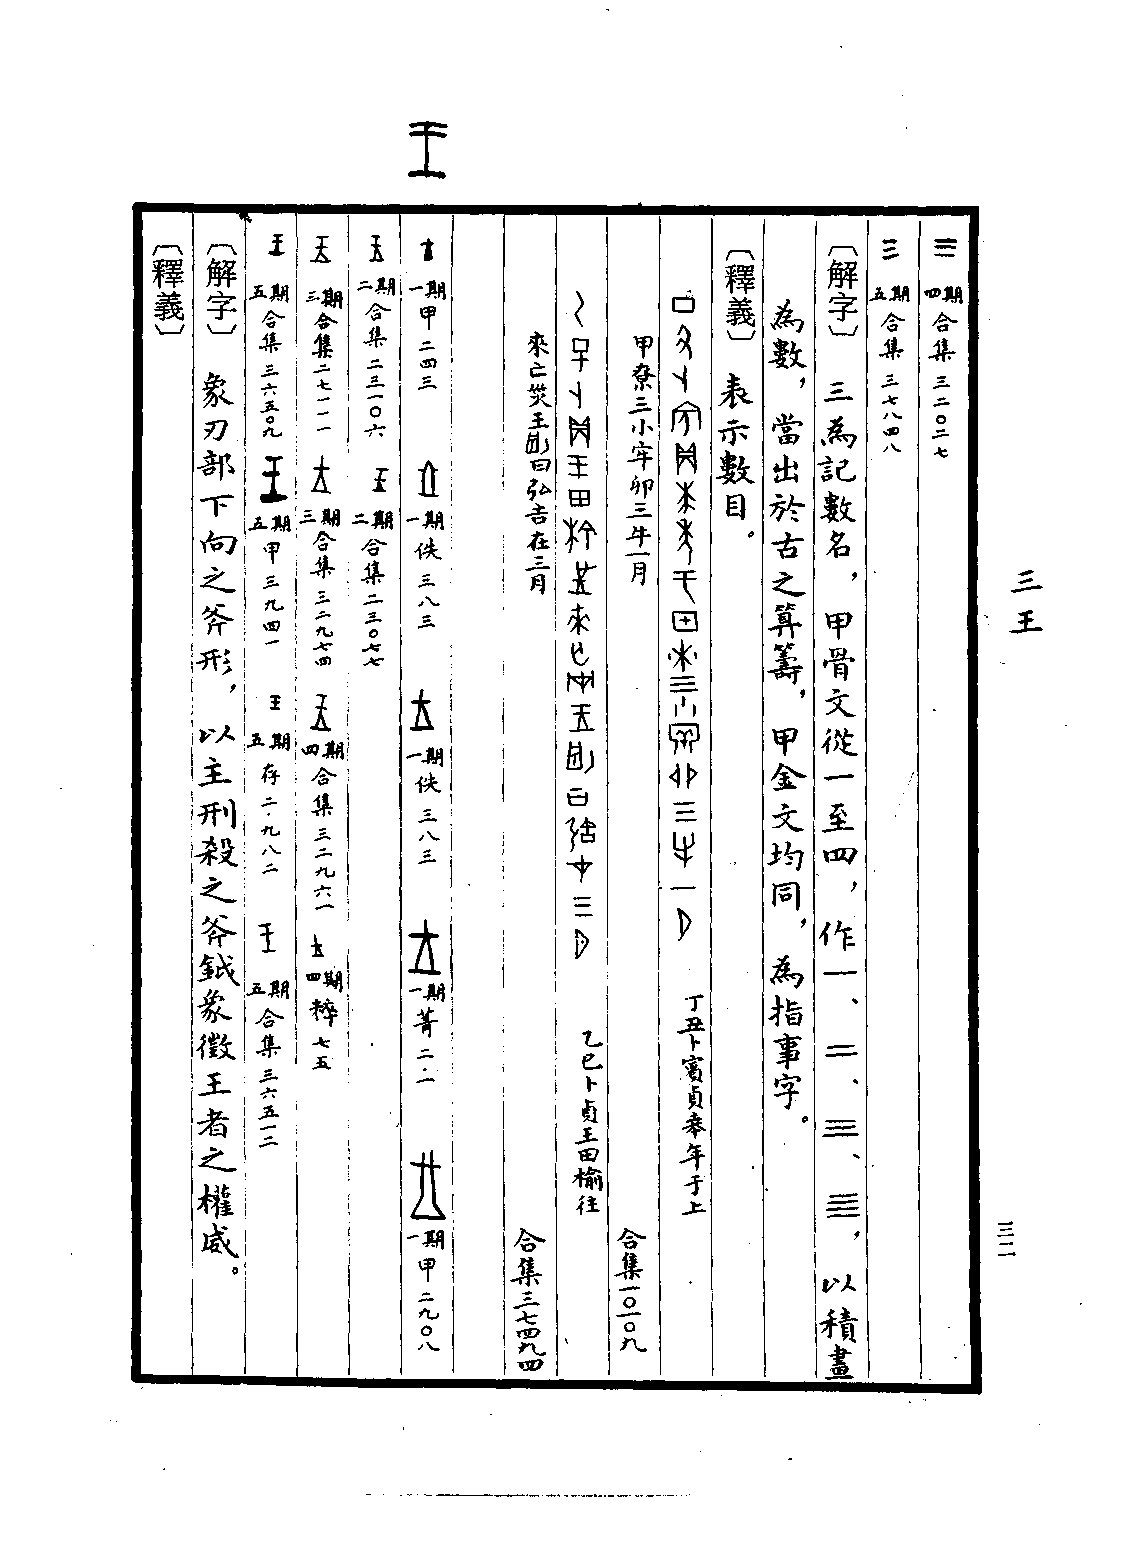 三王
三二
三 四期 合集三二〇二七
三 五期 合集三七八四八
〔解字〕 三為記數名，甲骨文從一至四，作一、二、三、亖，以積畫
為數，當出於古之筭籌，甲金文均同，為指事字。
〔釋義〕 表示數目。
丁丑卜賓貞𠦪年于上
甲尞三小𫳅卯三牛一月 合集一〇一〇九
乙巳卜貞王田榆往
來亡災王𠧞曰弘吉在三月 合集三七四九四
王
一期 甲二四三 一期 佚三八三 一期 佚三八三 一期 菁二·一 一期 甲二九〇八
二期 合集二三一〇六 二期 合集二三〇七七
三期 合集二七一一一 三期 合集三二九七四 四期 合集三二九六一 四期 粹七五
五期 合集三六五〇九 五期 甲三九四一 五期 存二·九八二 五期 合集三六五一二
〔解字〕 象刃部下向之斧形，以主刑殺之斧鉞象徵王者之權威。
〔釋義〕